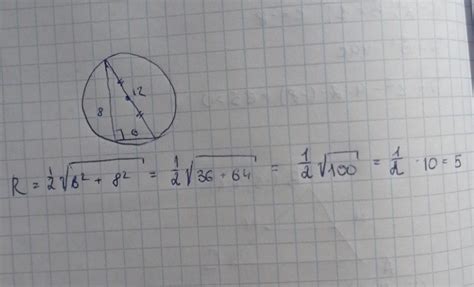 12
8
6
R = 1/2 √(6² + 8²) = 1/2 √(36 + 64) = 1/2 √100 = 1/2 · 10 = 5